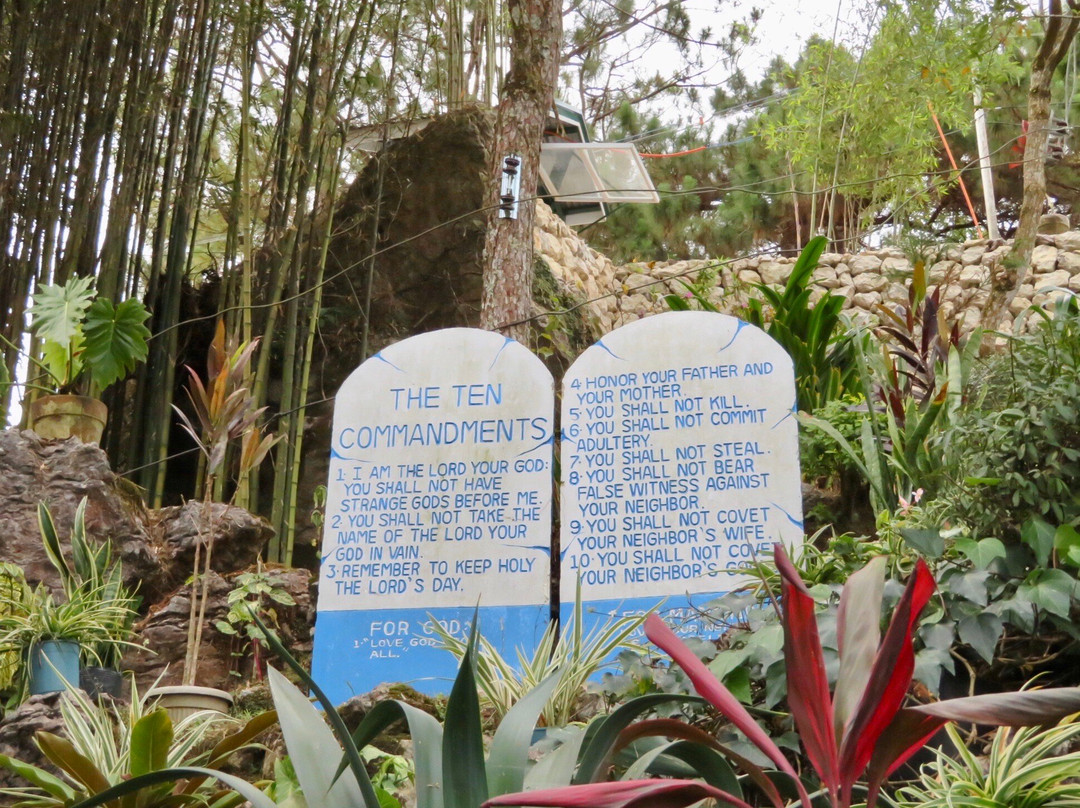 THE TEN
COMMANDMENTS
1· I AM THE LORD YOUR GOD:
YOU SHALL NOT HAVE
STRANGE GODS BEFORE ME.
2· YOU SHALL NOT TAKE THE
NAME OF THE LORD YOUR
GOD IN VAIN.
3· REMEMBER TO KEEP HOLY
THE LORD'S DAY.
FOR GOD:
1·"LOVE GOD
ALL."
4· HONOR YOUR FATHER AND
YOUR MOTHER.
5· YOU SHALL NOT KILL.
6· YOU SHALL NOT COMMIT
ADULTERY.
7· YOU SHALL NOT STEAL.
8· YOU SHALL NOT BEAR
FALSE WITNESS AGAINST
YOUR NEIGHBOR.
9· YOU SHALL NOT COVET
YOUR NEIGHBOR'S WIFE.
10· YOU SHALL NOT
YOUR NEIGHBOR'S
FOR